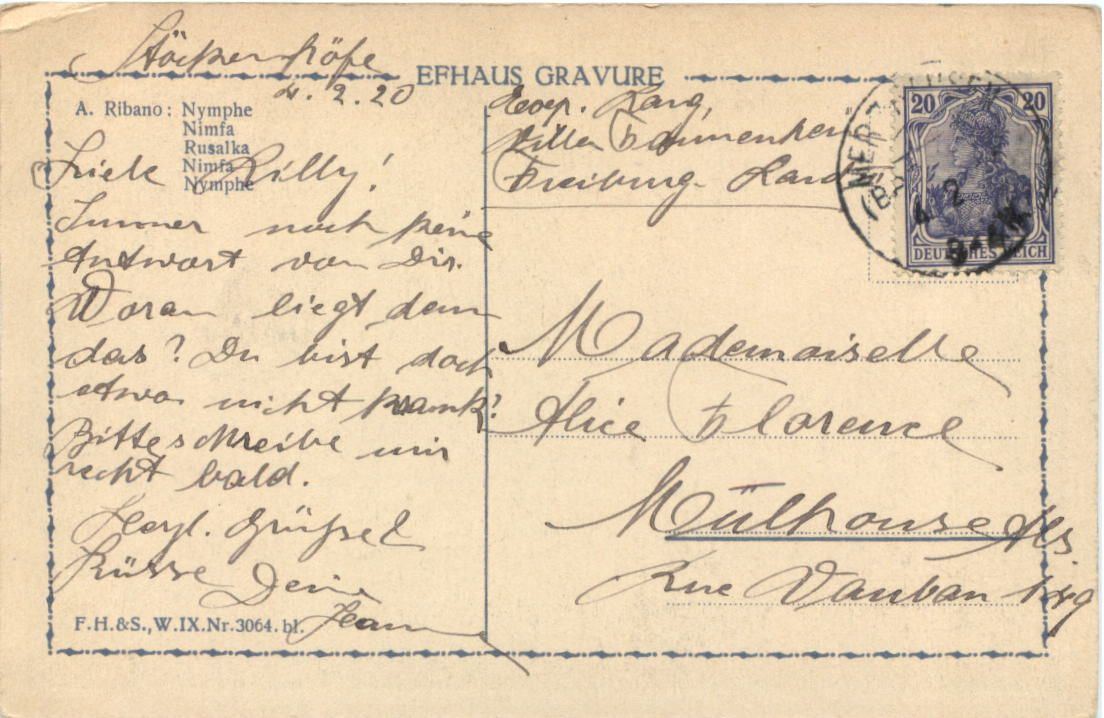 4. 2. 20
EFHAUS GRAVURE
A. Ribano: Nymphe
Nimfa
Rusalka
Nimfa
Nymphe
Lilly!
Immer noch keine
Antwort von Dir.
Woran liegt denn
das? Du bist doch
etwa nicht krank?
Bitte schreibe mir
recht bald.
Herzl. Grüße &
Küsse Deine
F.H.&S., W.IX.Nr. 3064. bl.
Exp. Karg,
Villa Tannenheim
Freiburg
20 20
DEUTSCHES REICH
4 2
Mademoiselle
Alice Florence
Mülhouse Els
Rue Vauban